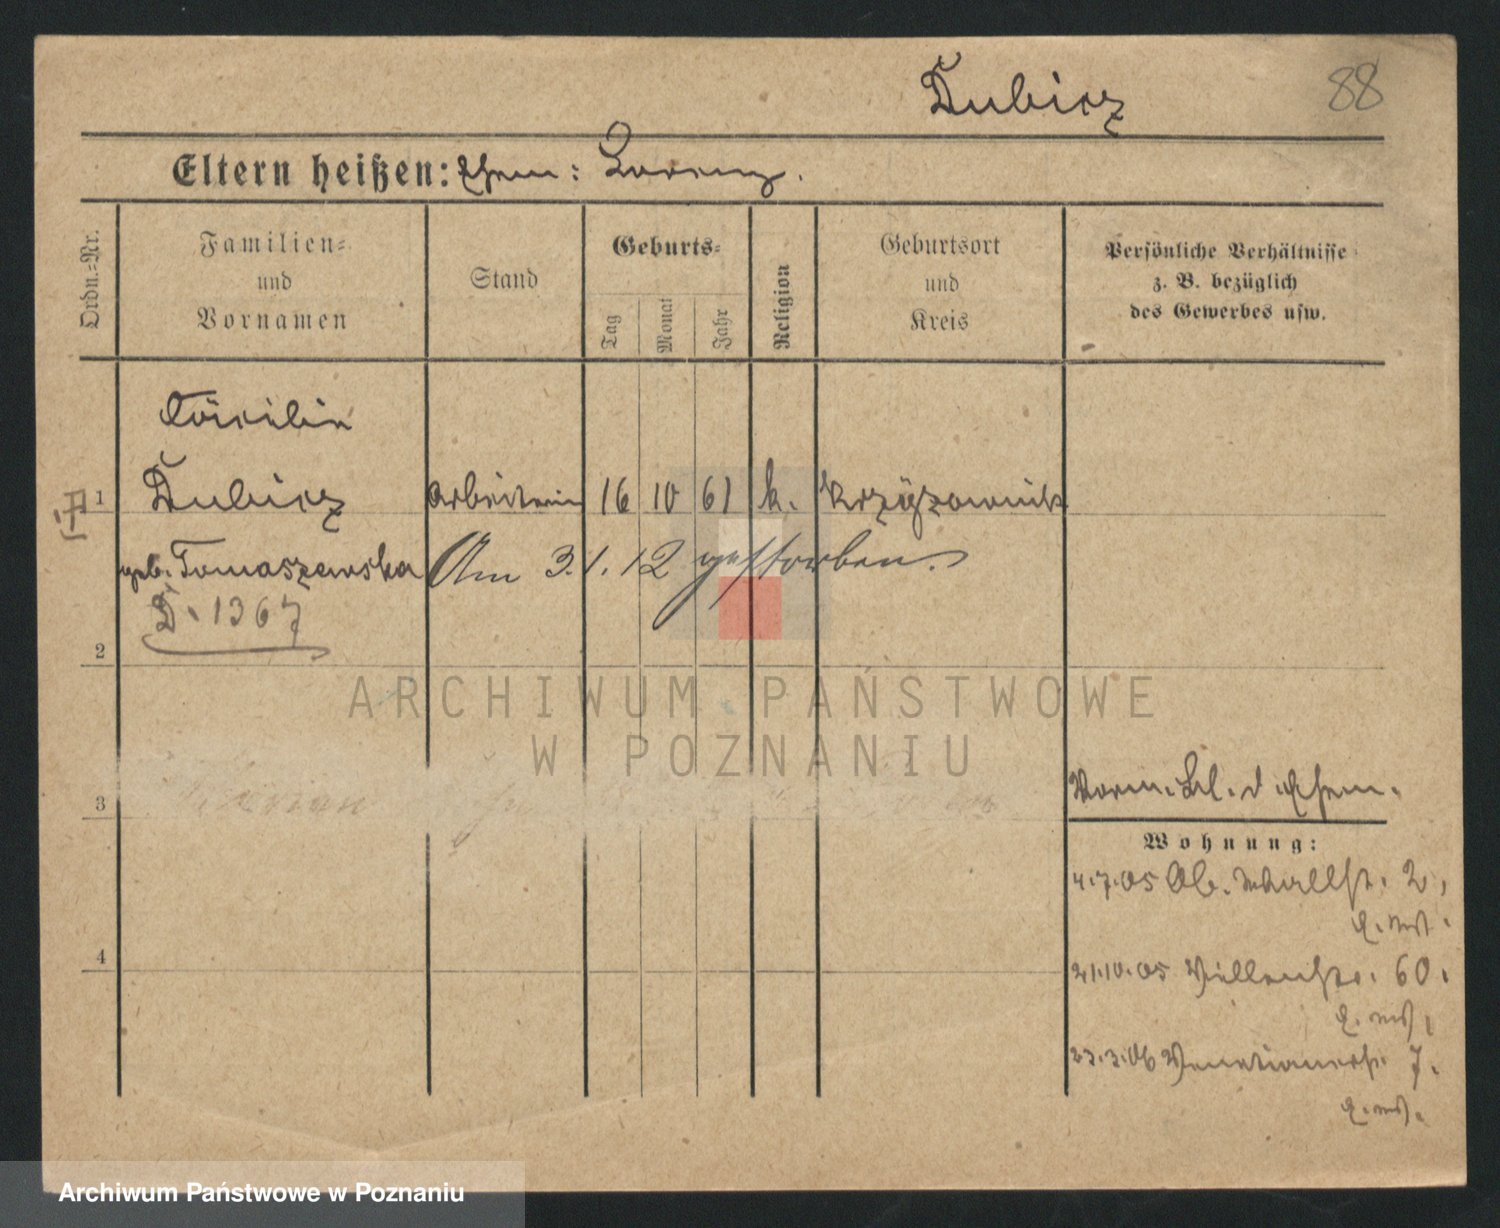 Dubicz
88
Eltern heißen: Ehem: Lorenz.
Ordn.=Nr.
Familien=
und
Vornamen
Stand
Geburts=
Tag
Monat
Jahr
Religion
Geburtsort
und
Kreis
Persönliche Verhältnisse
z. B. bezüglich
des Gewerbes usw.
Cäcilie
1 Dubicz Arbeiterin 16 10 61 k.
geb. Tomaszewska Am 3.1.12 gestorben.
D. 1367
2
ARCHIWUM PAŃSTWOWE
W POZNANIU
3
Vorm. Bl. d. Ehem.
Wohnung:
4.7.05 Ob. Wallstr. 2,
4
21.10.05 60.
23.3.06 Venetianerstr. 7.
Archiwum Państwowe w Poznaniu